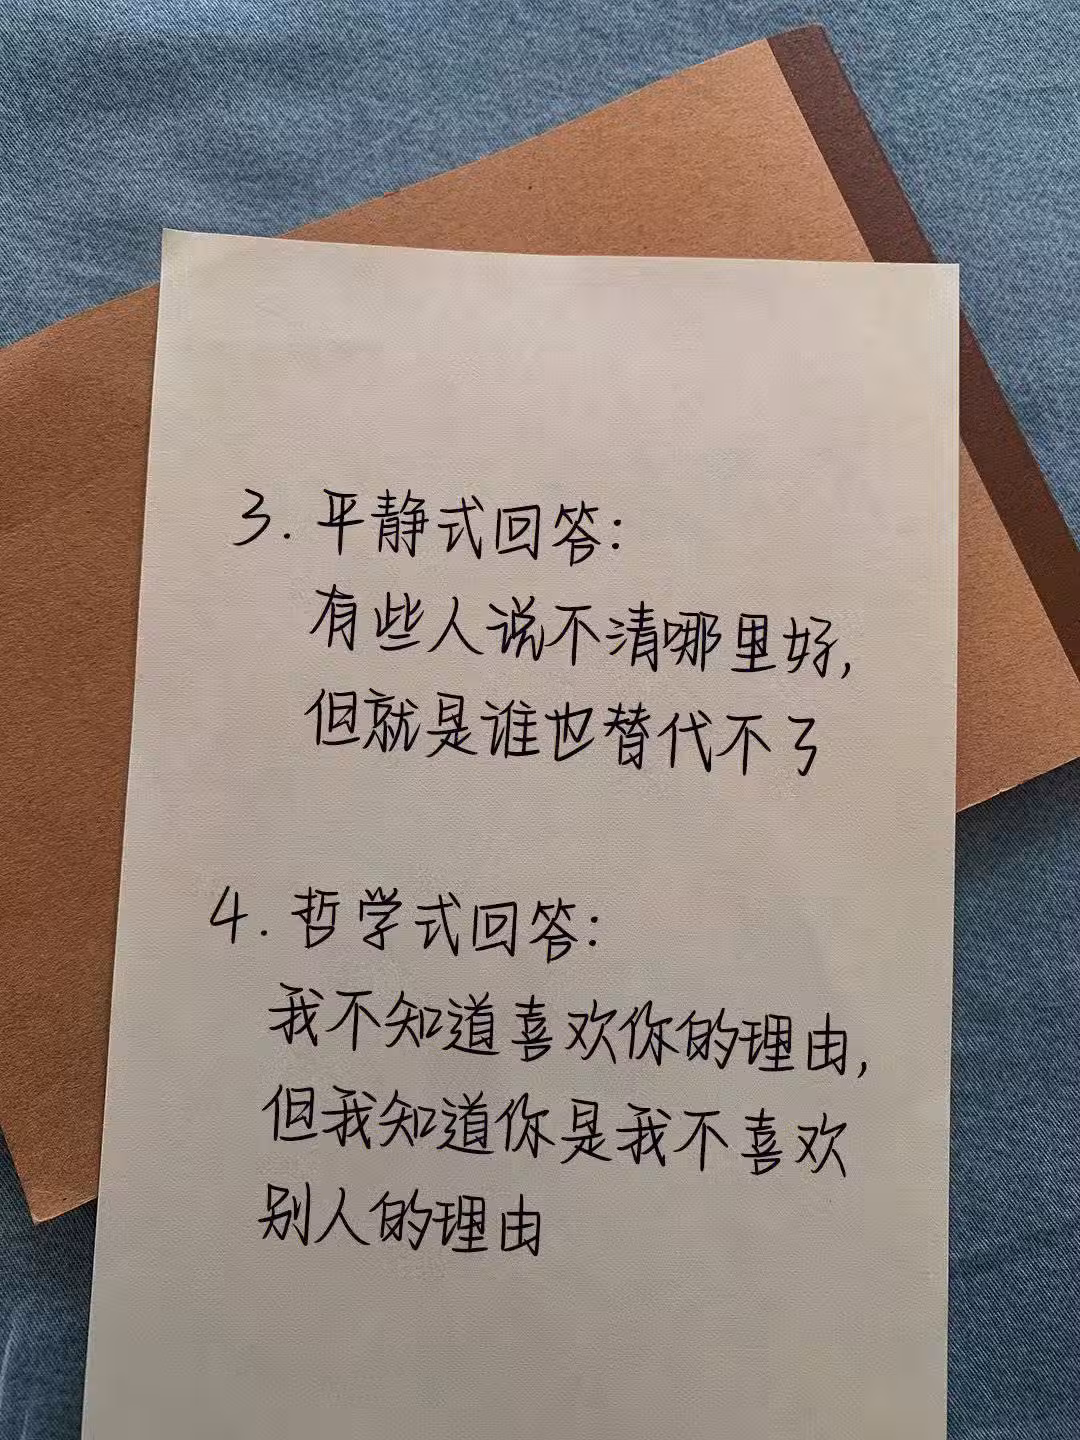 3. 平静式回答:
有些人说不清哪里好,
但就是谁也替代不了
4. 哲学式回答:
我不知道喜欢你的理由,
但我知道你是我不喜欢
别人的理由